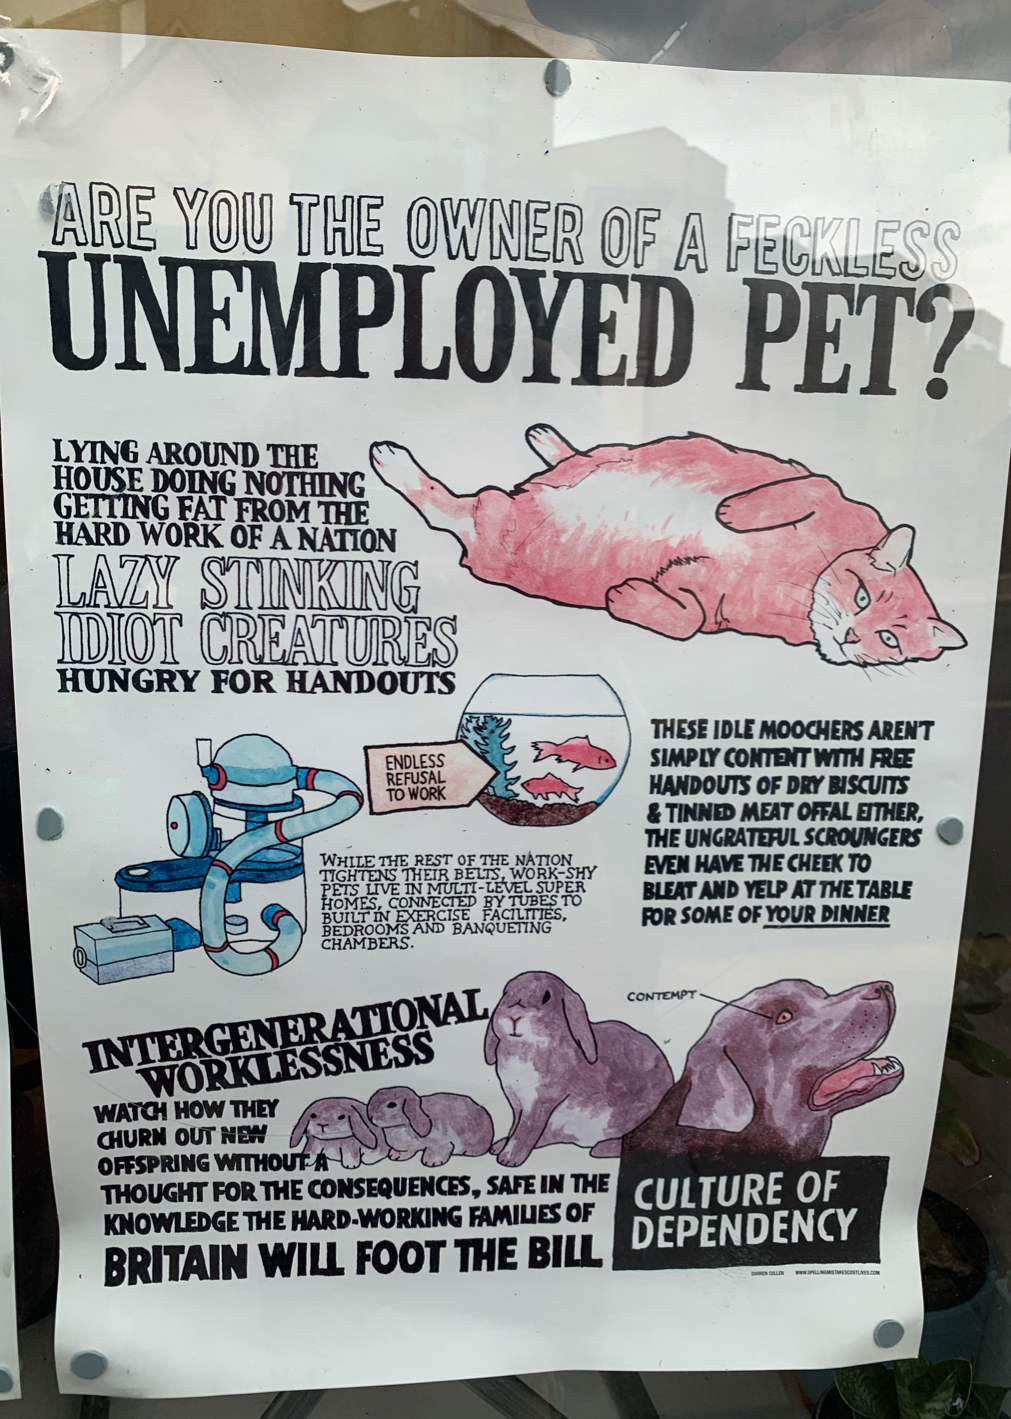 ARE YOU THE OWNER OF A FECKLESS
UNEMPLOYED PET?
LYING AROUND THE
HOUSE DOING NOTHING
GETTING FAT FROM THE
HARD WORK OF A NATION
LAZY STINKING
IDIOT CREATURES
HUNGRY FOR HANDOUTS
ENDLESS
REFUSAL
TO WORK
THESE IDLE MOOCHERS AREN'T
SIMPLY CONTENT WITH FREE
HANDOUTS OF DRY BISCUITS
& TINNED MEAT OFFAL EITHER,
THE UNGRATEFUL SCROUNGERS
EVEN HAVE THE CHEEK TO
BLEAT AND YELP AT THE TABLE
FOR SOME OF YOUR DINNER
WHILE THE REST OF THE NATION
TIGHTENS THEIR BELTS, WORK-SHY
PETS LIVE IN MULTI-LEVEL SUPER
HOMES, CONNECTED BY TUBES TO
BUILT IN EXERCISE FACILITIES,
BEDROOMS AND BANQUETING
CHAMBERS.
INTERGENERATIONAL
WORKLESSNESS
WATCH HOW THEY
CHURN OUT NEW
OFFSPRING WITHOUT A
THOUGHT FOR THE CONSEQUENCES, SAFE IN THE
KNOWLEDGE THE HARD-WORKING FAMILIES OF
BRITAIN WILL FOOT THE BILL
CONTEMPT
CULTURE OF
DEPENDENCY
DARREN CULLEN WWW.SPELLINGMISTAKESCOSTLIVES.COM